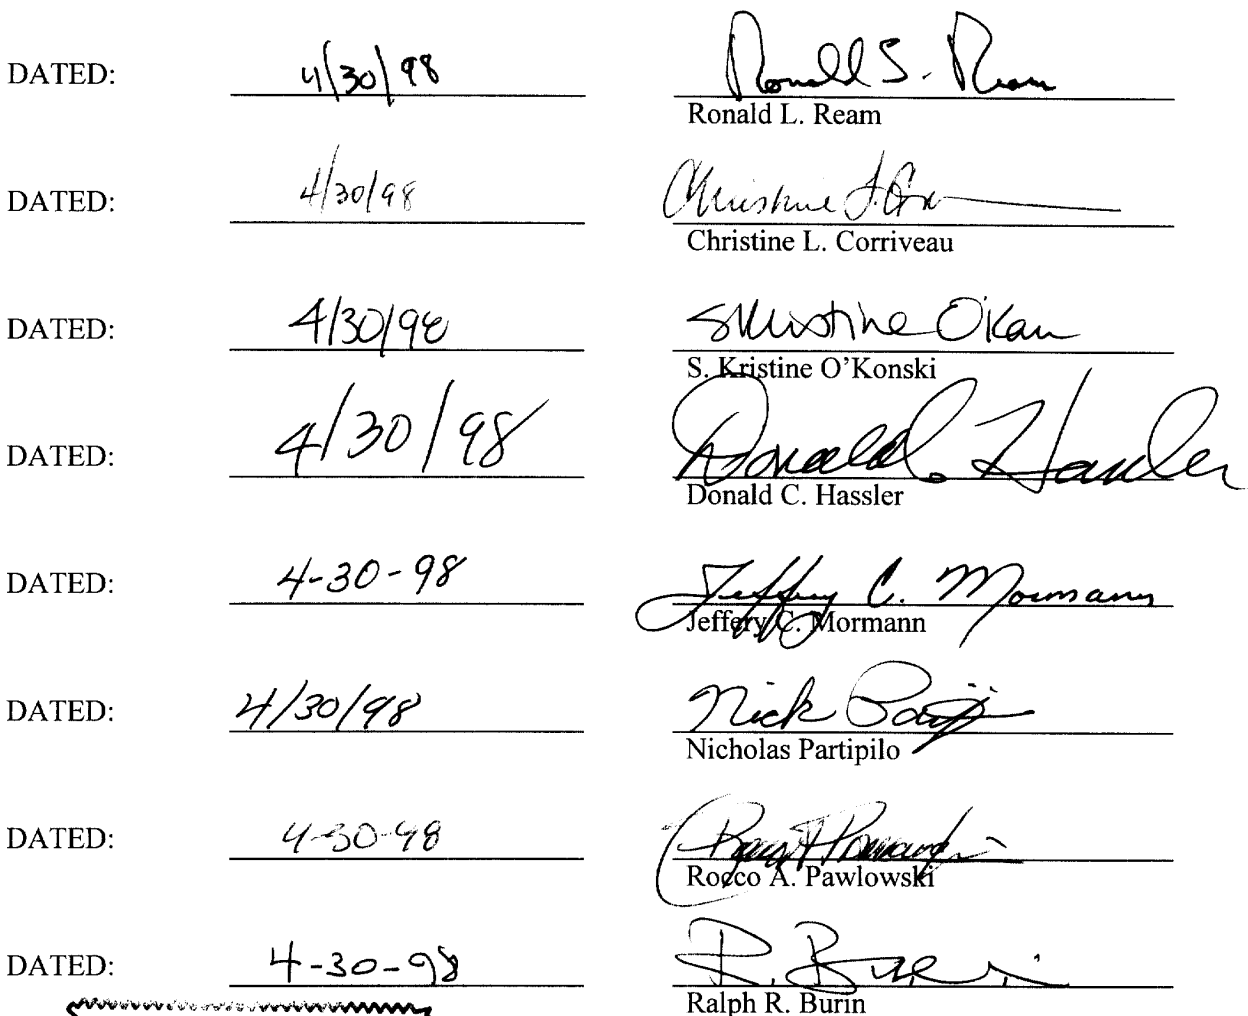 DATED: 4/30/98 Ronald S. Ream
Ronald L. Ream
DATED: 4/30/98 Christine L.
Christine L. Corriveau
DATED: 4/30/98 SKristine O'Kon
S. Kristine O'Konski
DATED: 4/30/98 Donald C. Hassler
Donald C. Hassler
DATED: 4-30-98 Jeffery C. Mormann
Jeffery C. Mormann
DATED: 4/30/98 Nick
Nicholas Partipilo
DATED: 4-30-98
Rocco A. Pawlowski
DATED: 4-30-98 R. Burin
Ralph R. Burin